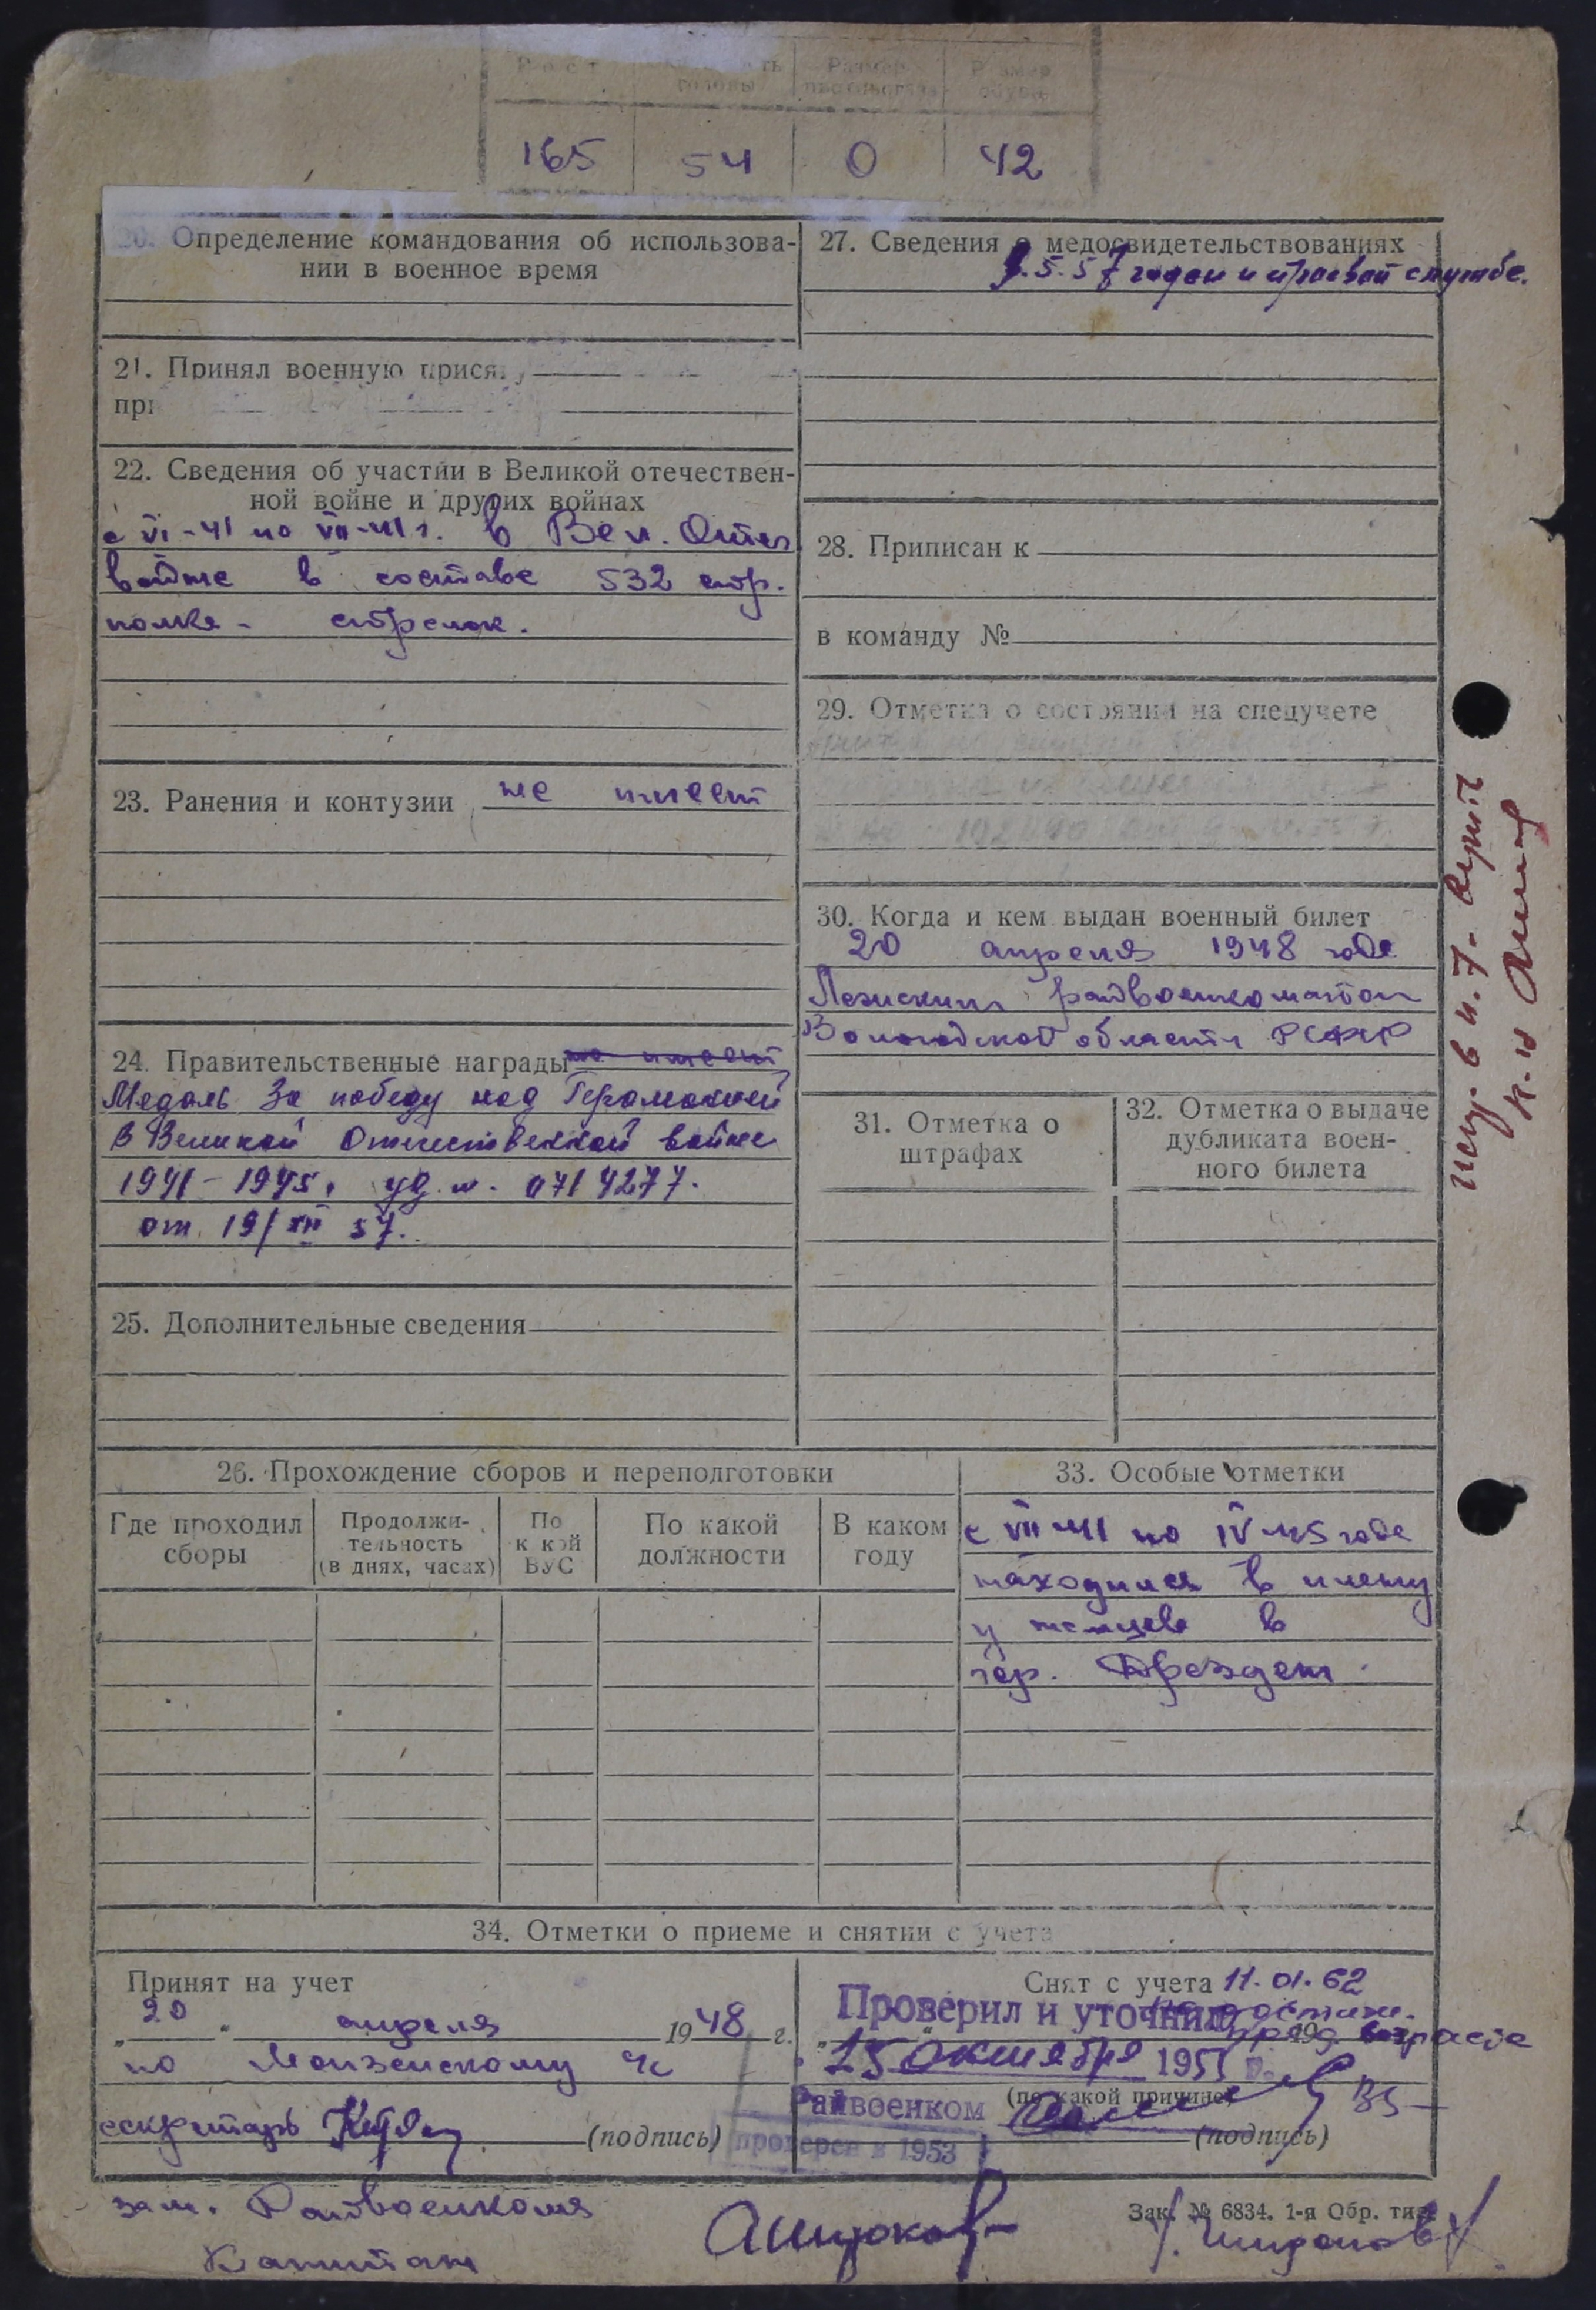 Рост
головы
Размер
165 54 0 42
20. Определение командования об использова-
нии в военное время
21. Принял военную присягу
22. Сведения об участии в Великой отечествен-
ной войне и других войнах
с VI-41 по VII-41 г. в Вел. Отеч
войне в составе 532 стр.
полка - стрелок.
23. Ранения и контузии не имеет
24. Правительственные награды не имеет
Медаль За победу над Германией
в Великой Отечественной войне
1941-1945. уд. н. 0714277.
от 19/XII 57.
25. Дополнительные сведения
27. Сведения о медосвидетельствованиях
9.5.57 годен к строевой службе.
28. Приписан к
в команду №
29. Отметка о состоянии на спецучете
30. Когда и кем выдан военный билет
20 апреля 1948 года
райвоенкоматом
Вологодской области РСФСР
31. Отметка о
штрафах
32. Отметка о выдаче
дубликата воен-
ного билета
26. Прохождение сборов и переподготовки
Где проходил
сборы
Продолжи-
тельность
(в днях, часах)
По
к кой
ВУС
По какой
должности
В каком
году
33. Особые отметки
с VII-41 по IV-45 года
находился в плену
у немцев в
гор. Дрезден.
34. Отметки о приеме и снятии с учета
Принят на учет
"20" апреля 1948 г.
по
секретарь
(подпись)
Снят с учета 11.01.62
Проверил и уточнил
пред. возраста
15 октября 195
(по какой причине)
Райвоенком
(подпись)
проверен в 1953
зам. Райвоенкома
Капитан
Зак. № 6834. 1-я Обр. тип.